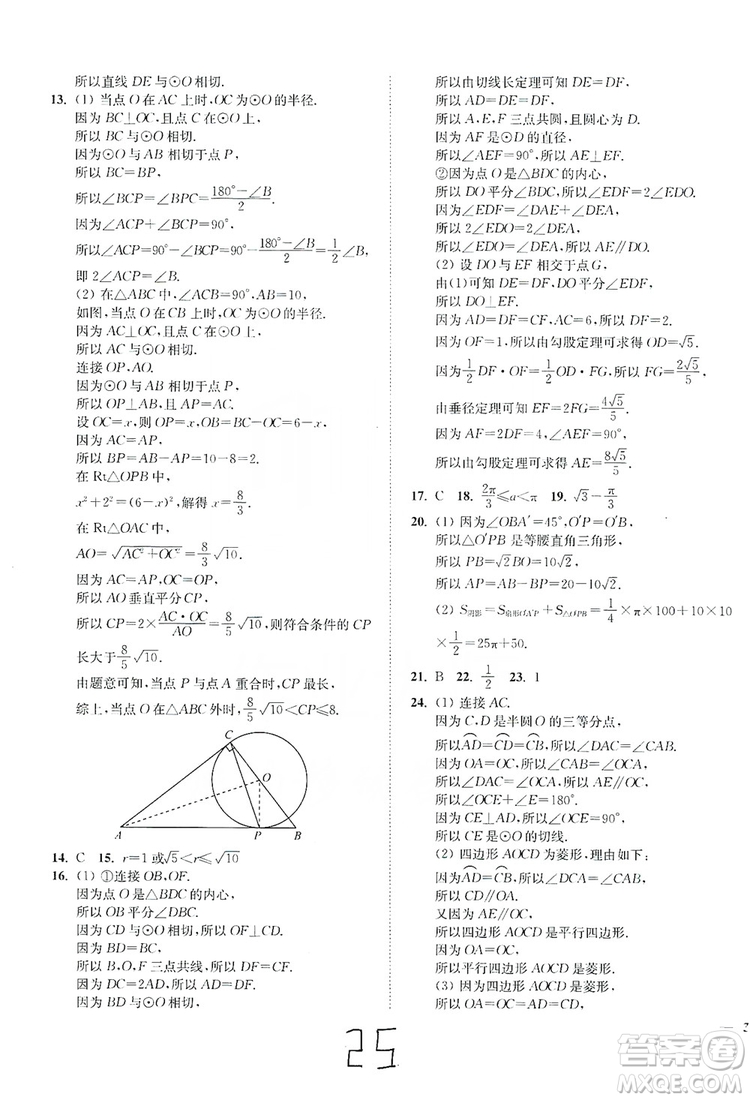 所以直线 DE 与⊙O 相切.
13. (1) 当点 O 在 AC 上时,OC 为⊙O 的半径.
因为 BC⊥OC,且点 C 在⊙O 上,
所以 BC 与⊙O 相切.
因为⊙O 与 AB 相切于点 P,
所以 BC=BP,
所以∠BCP=∠BPC=\frac{180°-∠B}{2}.
因为∠ACP+∠BCP=90°,
所以∠ACP=90°-∠BCP=90°-\frac{180°-∠B}{2}=\frac{1}{2}∠B,
即 2∠ACP=∠B.
(2) 在△ABC 中,∠ACB=90°,AB=10,
如图,当点 O 在 CB 上时,OC 为⊙O 的半径.
因为 AC⊥OC,且点 C 在⊙O 上,
所以 AC 与⊙O 相切.
连接 OP,AO.
因为⊙O 与 AB 相切于点 P,
所以 OP⊥AB,且 AP=AC.
设 OC=x,则 OP=x,OB=BC-OC=6-x,
所以 BP=AB-AP=10-8=2.
在 Rt△OPB 中,
x²+2²=(6-x)²,解得 x=\frac{8}{3}.
在 Rt△OAC 中,
AO=\sqrt{AC²+OC²}=\frac{8}{3}\sqrt{10}.
因为 AC=AP,OC=OP,
所以 AO 垂直平分 CP,
所以 CP=2×\frac{AC·OC}{AO}=\frac{8}{5}\sqrt{10},则符合条件的 CP
长大于\frac{8}{5}\sqrt{10}.
由题意可知,当点 P 与点 A 重合时,CP 最长,
综上,当点 O 在△ABC 外时,\frac{8}{5}\sqrt{10}<CP≤8.
C
O
A P B
14. C 15. r=1 或\sqrt{5}<r≤\sqrt{10}
16. (1) ①连接 OB,OF.
因为点 O 是△BDC 的内心,
所以 OB 平分∠DBC.
因为 CD 与⊙O 相切,所以 OF⊥CD.
因为 BD=BC,
所以 B,O,F 三点共线,所以 DF=CF.
因为 DC=2AD,所以 AD=DF.
因为 BD 与⊙O 相切,
所以由切线长定理可知 DE=DF,
所以 AD=DE=DF,
所以 A,E,F 三点共圆,且圆心为 D.
因为 AF 是⊙D 的直径,
所以∠AEF=90°,所以 AE⊥EF.
②因为点 O 是△BDC 的内心,
所以 DO 平分∠BDC,所以∠EDF=2∠EDO.
因为∠EDF=∠DAE+∠DEA,
所以 2∠EDO=2∠DEA,
所以∠EDO=∠DEA,所以 AE∥DO.
(2) 设 DO 与 EF 相交于点 G,
由(1)可知 DE=DF,DO 平分∠EDF,
所以 DO⊥EF.
因为 AD=DF=CF,AC=6,所以 DF=2.
因为 OF=1,所以由勾股定理可求得 OD=\sqrt{5}.
因为\frac{1}{2}DF·OF=\frac{1}{2}OD·FG,所以 FG=\frac{2\sqrt{5}}{5},
由垂径定理可知 EF=2FG=\frac{4\sqrt{5}}{5}.
因为 AF=2DF=4,∠AEF=90°,
所以由勾股定理可求得 AE=\frac{8\sqrt{5}}{5}.
17. C 18. \frac{2π}{3}≤a<π 19. \sqrt{3}-\frac{π}{3}
20. (1) 因为∠OBA′=45°,O′P=O′B,
所以△O′PB 是等腰直角三角形,
所以 PB=\sqrt{2}BO=10\sqrt{2},
所以 AP=AB-BP=20-10\sqrt{2}.
(2) S阴影=S扇形O′A′P+S△O′PB=\frac{1}{4}×π×100+10×10
×\frac{1}{2}=25π+50.
21. B 22. \frac{1}{2} 23. 1
24. (1) 连接 AC.
因为 C,D 是半圆 O 的三等分点,
所以\overset{⌒}{AD}=\overset{⌒}{CD}=\overset{⌒}{CB},所以∠DAC=∠CAB.
因为 OA=OC,所以∠CAB=∠OCA,
所以∠DAC=∠OCA,所以 AE∥OC,
所以∠OCE+∠E=180°.
因为 CE⊥AD,所以∠OCE=90°,
所以 CE 是⊙O 的切线.
(2) 四边形 AOCD 为菱形.理由如下:
因为\overset{⌒}{AD}=\overset{⌒}{CB},所以∠DCA=∠CAB,
所以 CD∥OA.
又因为 AE∥OC,
所以四边形 AOCD 是平行四边形.
因为 OA=OC,
所以四边形 AOCD 是菱形.
(3) 因为四边形 AOCD 是菱形,
所以 OA=OC=AD=CD,
— 2
25
答案圈
MXQE.COM